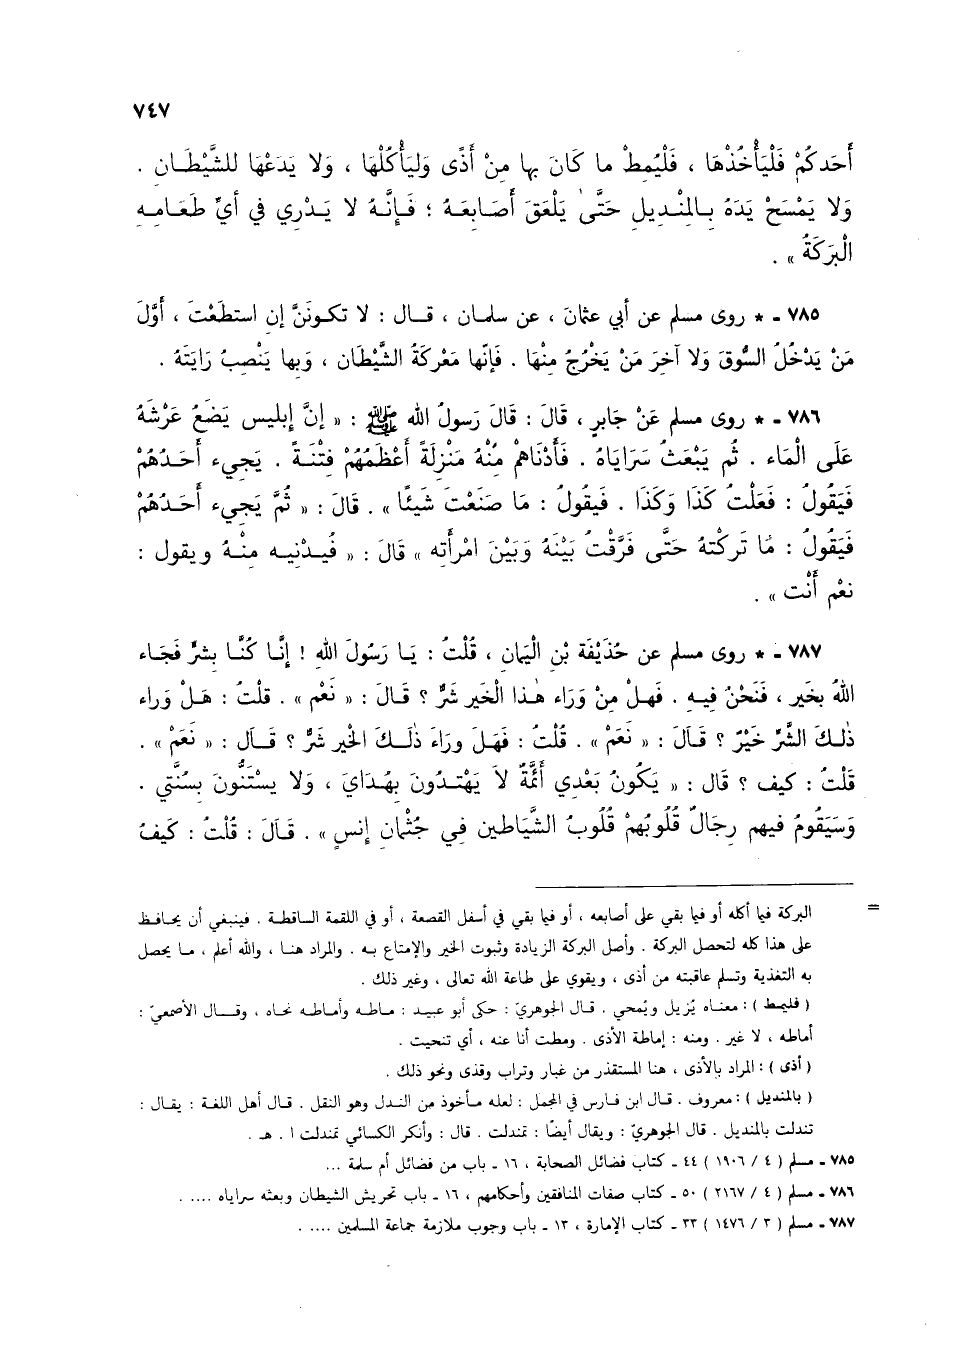 ٧٤٧
أَحَدكُمْ فَلْيَأْخُذْهَا ، فَلْيُمِطْ ما كَانَ بها مِنْ أَذًى وَلِيَأْكُلْهَا ، وَلا يَدَعْهَا للشَّيْطَان .
وَلا يَمْسَحْ يَدَهُ بالمِنْديلِ حَتَّىٰ يَلْعَقَ أَصَابعَهُ ؛ فَإِنَّهُ لا يَدْرِي في أيِّ طَعَامِهِ
الْبَرَكَةُ » .
٧٨٥ - * روى مسلم عن أبي عثمانَ ، عن سلمان ، قال : لا تكونَنَّ إن استطَعْتَ ، أَوَّلَ
مَنْ يَدْخُلُ السُّوقَ وَلا آخِرَ مَنْ يَخْرُجُ مِنْهَا . فَإنّها مَعْركَةُ الشَّيْطَان ، وَبها يَنْصِبُ رَايَتَهُ .
٧٨٦ - * روى مسلم عَنْ جَابرٍ ، قَالَ : قَالَ رَسولُ الله ﷺ : « إنَّ إبليس يَضَعُ عَرْشَهُ
عَلَى الْمَاء . ثُم يَبْعَثُ سَرَايَاهُ . فَأَدْنَاهُمْ مِنْهُ مَنْزِلَةً أَعْظَمُهُمْ فِتْنَةً . يَجيء أَحَدُهُمْ
فَيَقُولُ : فَعَلْتُ كَذَا وَكَذَا . فَيقُولُ : مَا صَنَعْتَ شَيئًا » . قَالَ : « ثُمَّ يَجيء أَحَدُهُمْ
فَيَقُولُ : مَا تَركْتهُ حَتَّى فَرَّقْتُ بَيْنَهُ وَبَيْنَ امْرأَته » قَالَ : « فَيُدْنيه مِنْهُ ويقول :
نعْم أَنْت » .
٧٨٧ - * روى مسلم عن حُذَيْفَة بْنِ الْيَمان ، قُلْتُ : يَا رَسُولَ الله ! إنَّا كُنَّا بشرٍّ فَجَاء
اللهُ بخَير ، فَنَحْنُ فيه . فَهلْ مِنْ وَرَاء هٰذا الْخَير شَرٌّ ؟ قَالَ : « نَعْم » . قلْتُ : هَلْ وَراء
ذٰلكَ الشَّرِّ خَيْرٌ ؟ قَالَ : « نَعمْ » . قُلْتُ : فهَلْ وراءَ ذٰلكَ الخير شَرٌّ ؟ قَالَ : « نَعَمْ » .
قَلْتُ : كيف ؟ قال : « يَكُونُ بَعْدي أَئمَّةٌ لاَ يَهْتدُونَ بهُدَايَ ، وَلا يسْتَنُّونَ بسُنَّتي .
وَسَيَقُومُ فيهم رِجَالٌ قُلُوبُهمْ قُلُوبُ الشَّيَاطين فِي جُثْمَان إنْسٍ » . قَالَ : قُلْتُ : كَيْفُ
= البركة فيما أكله أو فيما بقي على أصابعه ، أو فيما بقي في أسفل القصعة ، أو في اللقمة الساقطة . فينبغي أن يحافظ
على هذا كله لتحصل البركة . وأصل البركة الزيادة وثبوت الخير والإمتاع به . والمراد هنا ، والله أعلم ، ما يحصل
به التغذية وتسلم عاقبته من أذى ، ويقوي على طاعة الله تعالى ، وغير ذلك .
( فليمط ) : معناه يُزيل ويُمحي . قال الجوهريّ : حكى أبو عبيد : ماطه وأماطه نحاه ، وقال الأصمعيّ :
أماطه ، لا غير . ومنه : إماطة الأذى . ومطت أنا عنه ، أي تنحيت .
( أذى ) : المراد بالأذى ، هنا المستقذر من غبار وتراب وقذى ونحو ذلك .
( بالمنديل ) : معروف . قال ابن فارس في المجمل : لعله مأخوذ من الندل وهو النقل . قال أهل اللغة : يقال :
تندلت بالمنديل . قال الجوهريّ : ويقال أيضًا : تمندلت . قال : وأنكر الكسائي تمندلت ا . هـ .
٧٨٥ - مسلم ( ٤ / ١٩٠٦ ) ٤٤ - كتاب فضائل الصحابة ، ١٦ - باب من فضائل أم سلمة ...
٧٨٦ - مسلم ( ٤ / ٢١٦٧ ) ٥٠ - كتاب صفات المنافقين وأحكامهم ، ١٦ - باب تحريش الشيطان وبعثه سراياه ....
٧٨٧ - مسلم ( ٣ / ١٤٧٦ ) ٣٣ - كتاب الإمارة ، ١٣ - باب وجوب ملازمة جماعة المسلمين ....